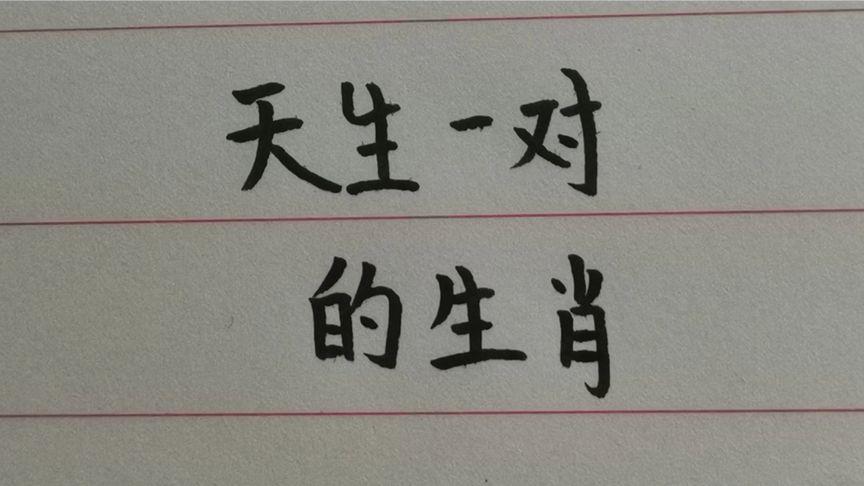 天生一对
的生肖